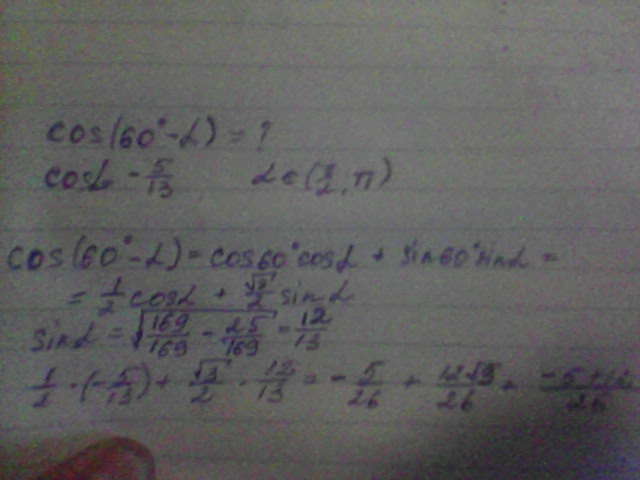 cos(60°-α) = ?
cosα - 5/13 α ∈ (π/2, π)
cos(60°-α) = cos60°cosα + sin60°sinα =
= 1/2 cosα + √3/2 sinα
sinα = √(169/169 - 25/169) = 12/13
1/2 · (-5/13) + √3/2 · 12/13 = - 5/26 + 12√3/26 = -5+12